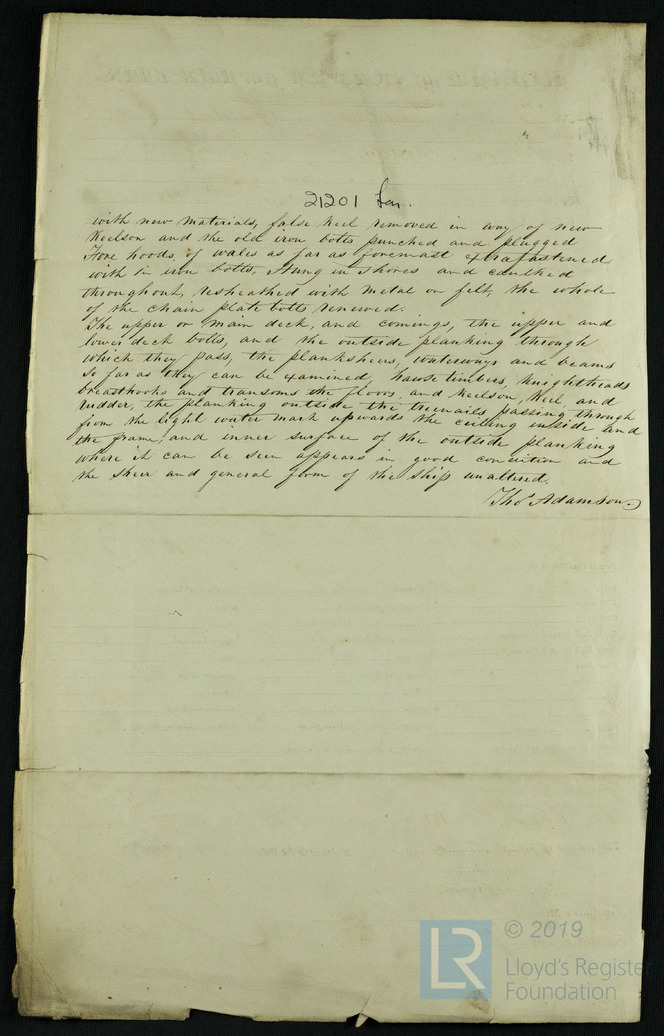 21201 Lon.
with new materials, false keel removed in way of new
Keelson and the old iron bolts punched and plugged
Fore hoods of wales as far as foremast extrafastened
with in iron bolts, Hung in Shores and caulked
throughout, resheathed with metal on felt, the whole
of the chain plate bolts renewed.
The upper or main deck, and comings, the upper and
lower deck bolts, and the outside planking through
which they pass, the plankshears, waterways and beams
so far as they can be examined, hawse timbers, knightheads
breasthooks and transoms the floors and keelson, keel and
rudder, the planking outside the treenails passing through
from the light water mark upwards the ceiling inside and
the frame, and inner surface of the outside planking
where it can be seen appears in good condition and
the sheer and general form of the ship unaltered.
Thos Adamson
© 2019
LR
Lloyd's Register
Foundation